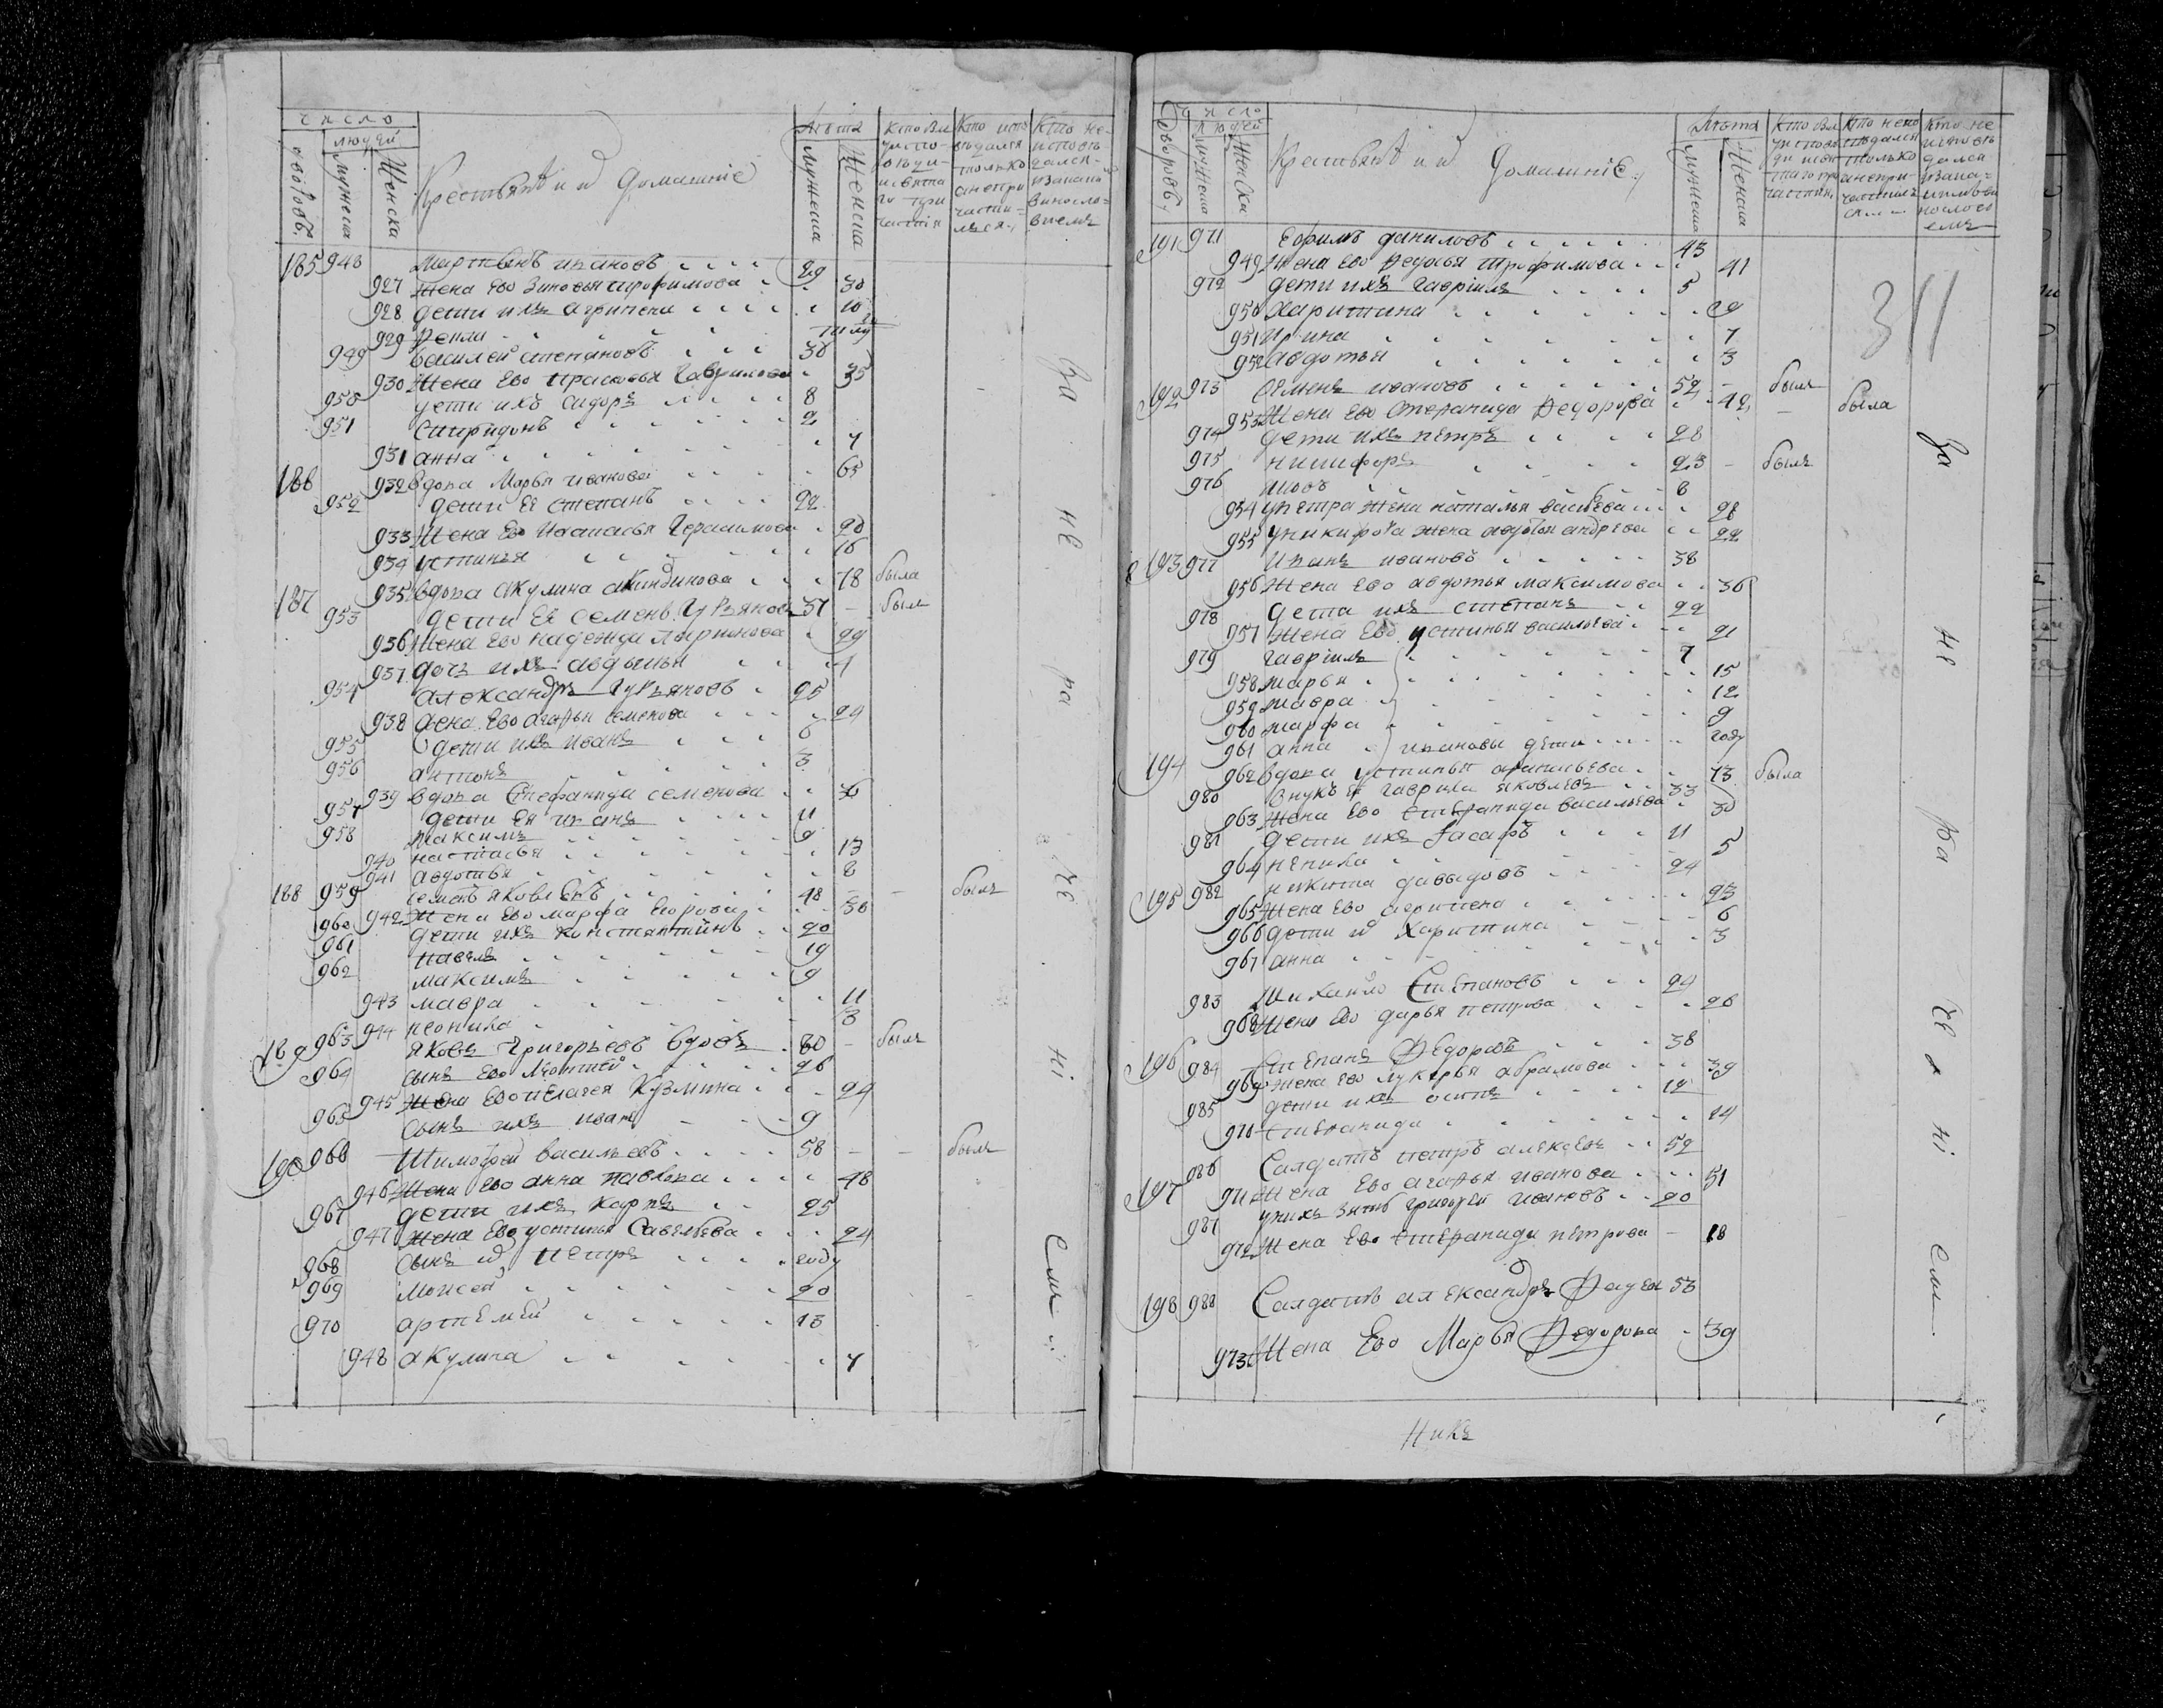 число
людей
дворовъ
мужеска
Женска
Крестьянѣ и ихъ Домашніе
Лѣта
мужеска
Женска
185 948 Мартынъ ивановъ 29
927 Жена Ево Зиновья трофимова 30
928 дети ихъ агрипена 10
929 фекла
949 василей степановъ 38
930 Жена Ево прасковья Гаврилова 35
950 дети ихъ сидоръ 8
951 Спиридонъ 2
931 анна 4
186 932 вдова Марья иванова 65
952 дети Ея степанъ 22
933 Жена Ево Настасья Герасимова 20
934 устинья 16
187 935 вдова Акулина акиндинова 78 была
953 дети Ея семенъ Гурьяновъ 37 былъ
936 Жена Ево надежда ларионова 29
937 дочь ихъ авдотья 4
954 александръ Гурьяновъ 25
938 жена Ево агафья семенова 24
955 дети ихъ иванъ 6
956 антонъ 3
939 вдова Стефанида семенова 36
957 дети Ея иванъ 11
958 максимъ 9
940 настасья 13
941 авдотья 8
188 959 семенъ яковлевъ 48 былъ
942 Жена Ево марфа Егорова 38
960 дети ихъ константинъ 20
961 павелъ 19
962 максимъ 9
943 мавра 11
944 неонила 3
189 963 яковъ Григорьевъ вдовъ 60 былъ
964 сынъ Ево леонтей 26
945 Жена Ево пелагея Кузмина 24
965 сынъ ихъ иванъ 9
190 966 Тимофей васильевъ 58 былъ
946 Жена Ево анна павлова 48
967 дети ихъ карпъ 25
947 жена Ево устинья Савельева 24
968 сынъ их петръ году
969 Моисей 20
970 артемей 13
948 акулина 4
За не ра че ні емъ
число
людей
Дворовъ
мужеска
Женска
Крестьянѣ и ихъ Домашніе
Лѣта
мужеска
Женска
311
191 971 Ефимъ даниловъ 43
949 Жена Ево Федосья трофимова 41
972 дети ихъ гавриилъ 5
950 Харитина 9
951 Ирина 7
952 авдотья 3
192 973 Семенъ ивановъ 52 былъ
953 Жена Ево Стефанида Федорова 42 была
974 дети ихъ петръ 28
975 никифоръ 23 былъ
976 8
954 у петра жена наталья васильева 28
955 у никифора жена авдотья андрева 22
193 977 Иванъ ивановъ 38
956 Жена Ево авдотья максимова 36
978 дети ихъ степанъ 22
957 жена Ево устинья васильева 21
979 гавриилъ 7
958 марья 15
959 мавра 12
960 марфа 9
961 анна ивановы дети году
194 962 вдова устинья 73 была
980 внукъ Ея гаврила яковлевъ 33
963 Жена Ево стефанида васильева 30
981 дети ихъ 11
964 ненила 5
195 982 никита давыдовъ 24
965 Жена Ево агрипена 23
966 дети их Харитина 6
967 анна 3
983 Михайло Степановъ 24
968 Жена Ево дарья петрова 26
196 984 Степанъ Федоровъ 38
969 Жена Ево лукерья абрамова 39
985 дети ихъ осипъ 12
970 степанида 14
986 Салдатъ петръ алексеевъ 52
197 971 Жена Ево агафья иванова 51
987 у нихъ зять григорей ивановъ 20
972 Жена Ево стефанида петрова 18
198 988 Салдатъ александръ 53
973 Жена Ево Марья Федорова 39
За не ра че ні емъ